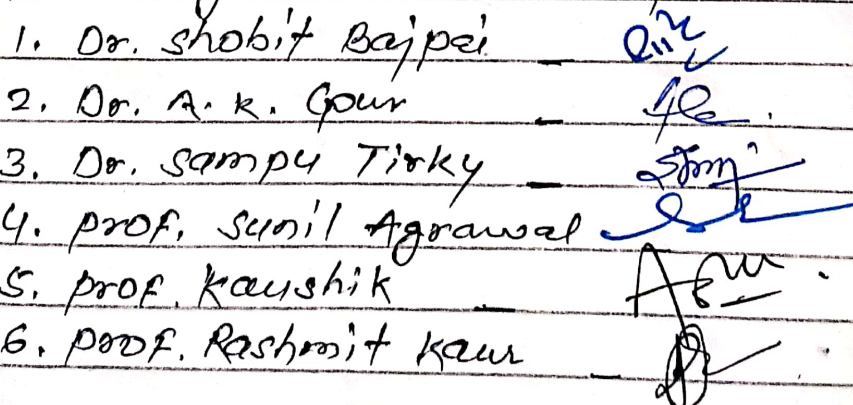 1. Dr. Shobit Bajpai -
2. Dr. A. K. Gour -
3. Dr. Sampu Tirky -
4. Prof. Sunil Agrawal
5. Prof. Kaushik -
6. Prof. Rashmit Kaur -